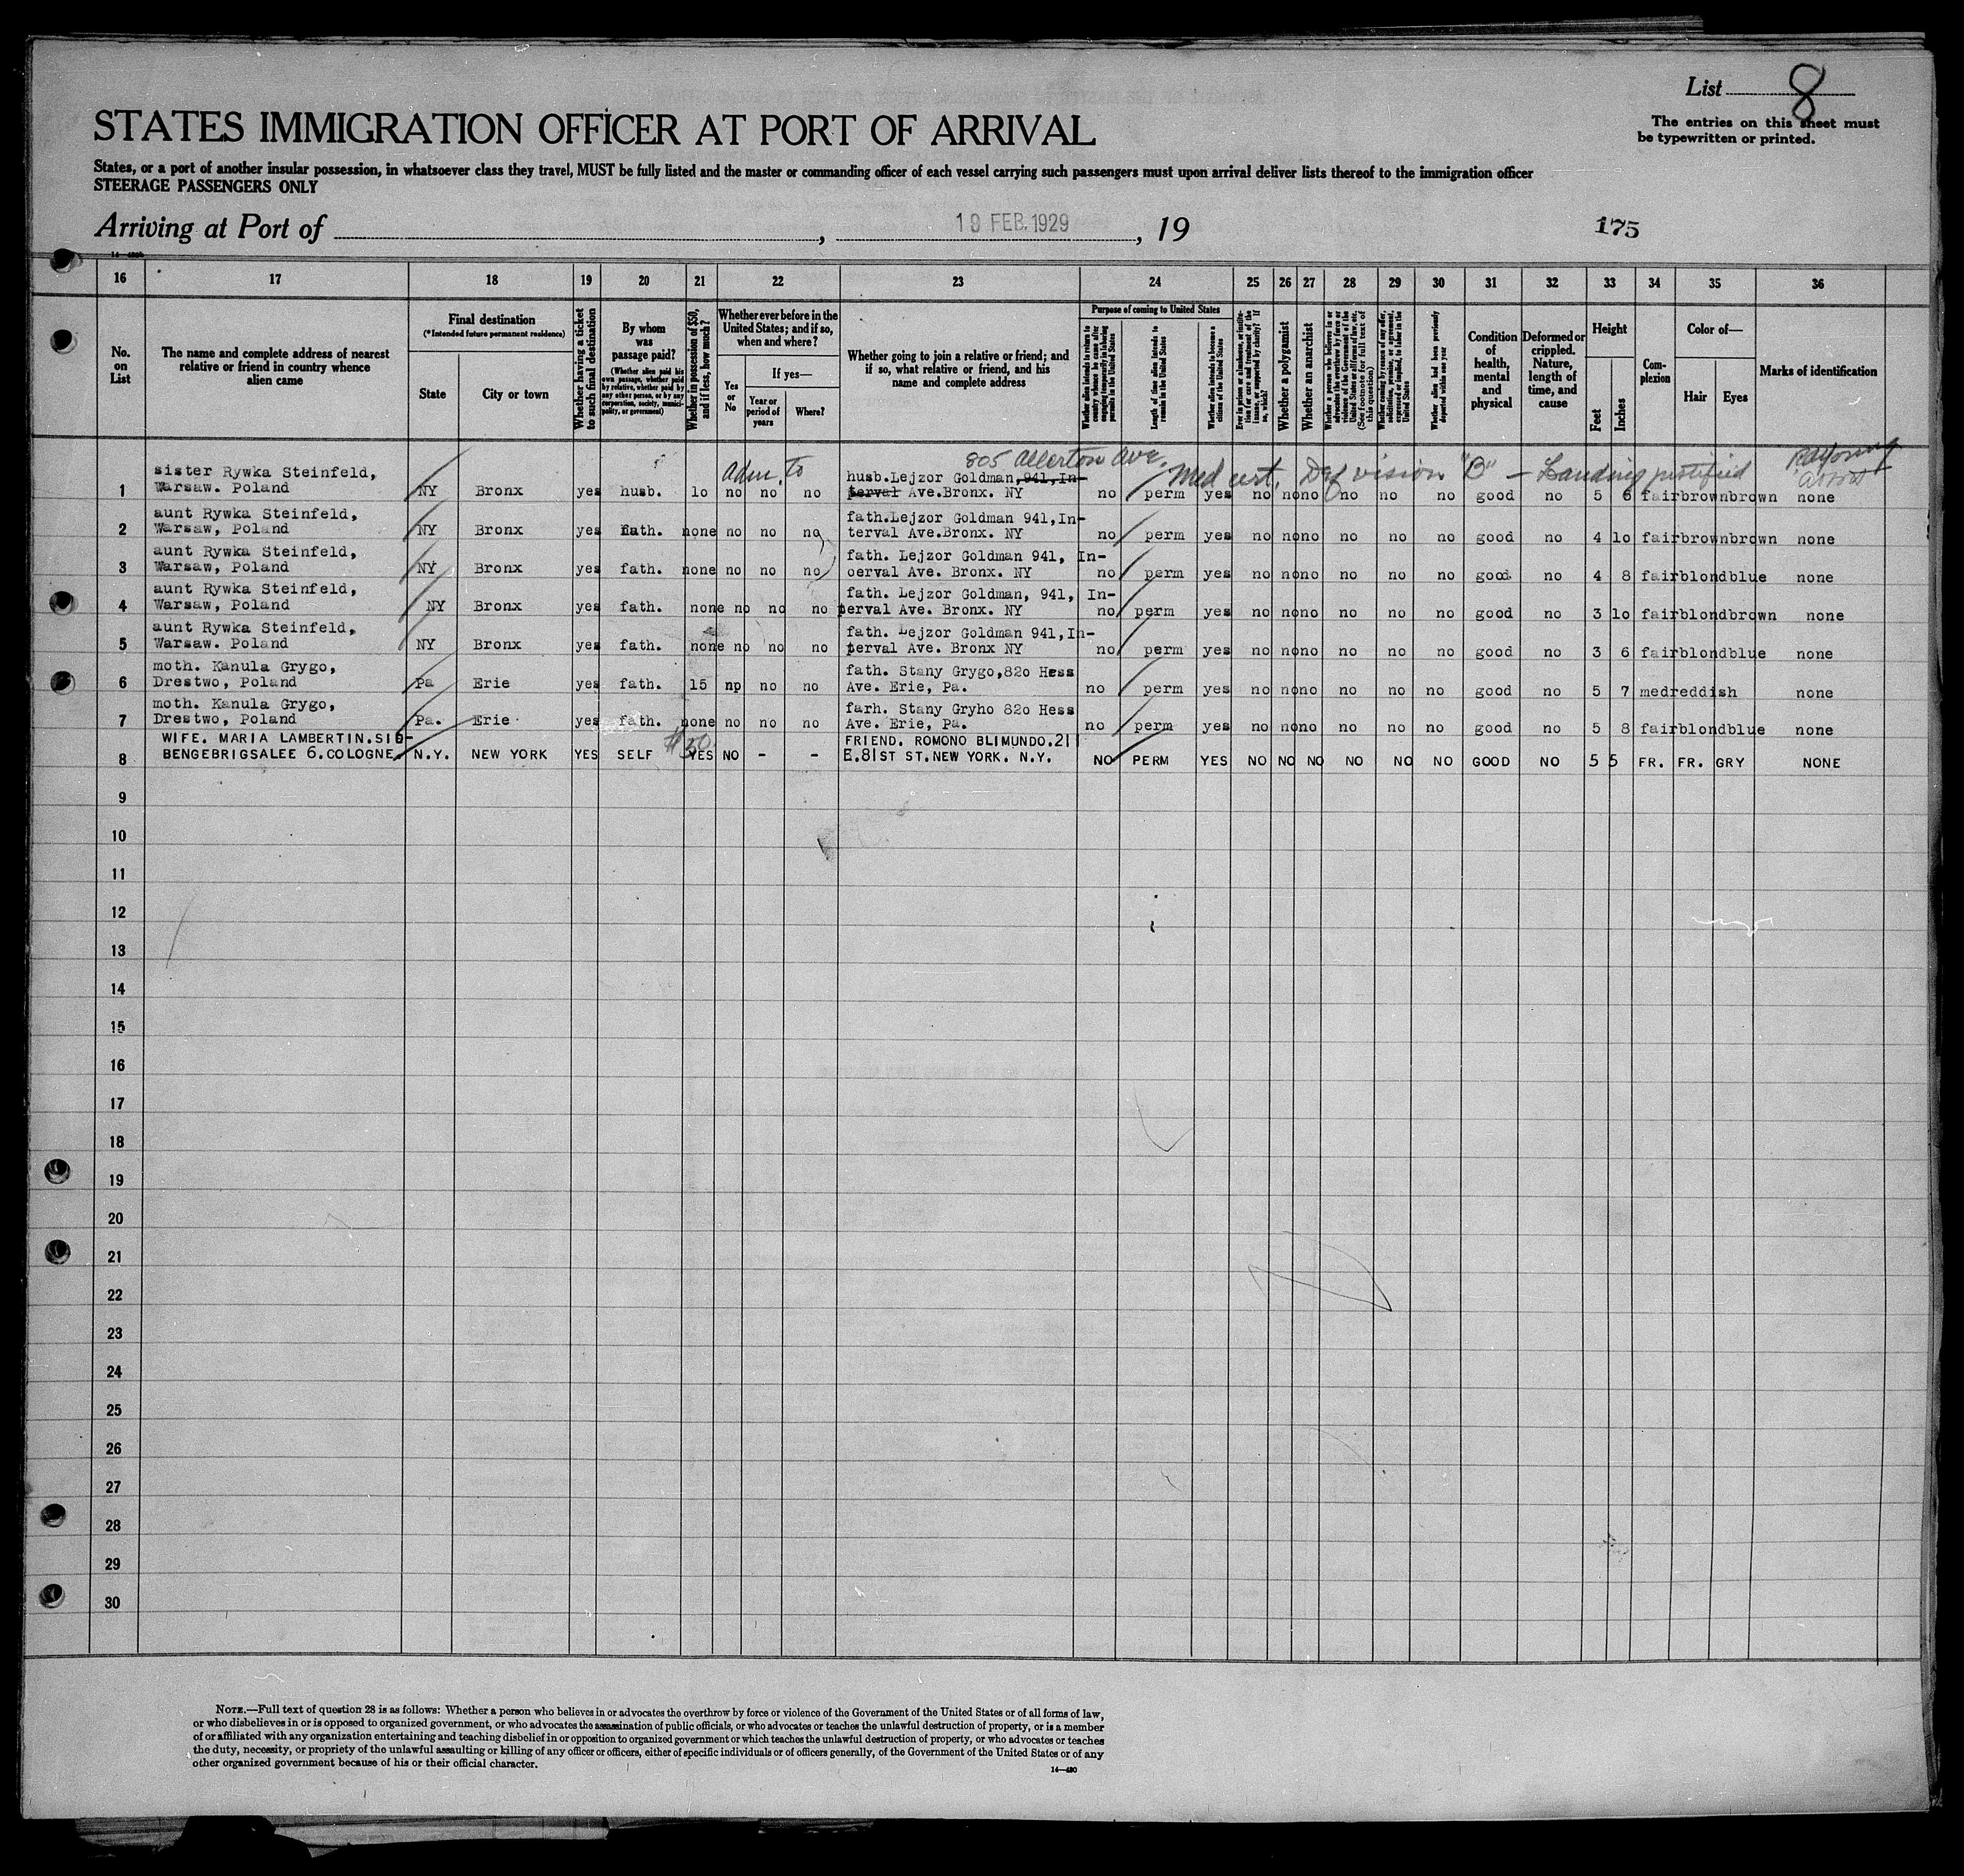 List 8
The entries on this sheet must
be typewritten or printed.
STATES IMMIGRATION OFFICER AT PORT OF ARRIVAL
States, or a port of another insular possession, in whatsoever class they travel, MUST be fully listed and the master or commanding officer of each vessel carrying such passengers must upon arrival deliver lists thereof to the immigration officer
STEERAGE PASSENGERS ONLY
Arriving at Port of , 19 FEB. 1929 , 19
175
16 17 18 19 20 21 22 23 24 25 26 27 28 29 30 31 32 33 34 35 36
No.
on
List
The name and complete address of nearest
relative or friend in country whence
alien came
Final destination
(*Intended future permanent residence)
State
City or town
Whether having a ticket
to such final destination
By whom
was
passage paid?
(Whether alien paid his
own passage, whether paid
by relative, whether paid by
any other person, or by any
corporation, society, munici-
pality, or government)
Whether in possession of $50,
and if less, how much?
Whether ever before in the
United States; and if so,
when and where?
Yes
or
No
If yes—
Year or
period of
years
Where?
Whether going to join a relative or friend; and
if so, what relative or friend, and his
name and complete address
Purpose of coming to United States
Length of time alien intends to
remain in the United States
Whether alien intends to become a
citizen of the United States
Whether a polygamist
Whether an anarchist
Whether alien had been previously
deported within one year
Condition
of
health,
mental
and
physical
Deformed or
crippled.
Nature,
length of
time, and
cause
Height
Feet
Inches
Com-
plexion
Color of—
Hair
Eyes
Marks of identification
805 Allerton Ave.
adm. to
Med cert. Def vision "B" – Landing justified
1 sister Rywka Steinfeld, Warsaw. Poland NY Bronx yes husb. 1o no no no husb.Lejzor Goldman,941,In-
terval Ave.Bronx. NY no perm yes no no no no no no good no 5 6 fair brown brown none
2 aunt Rywka Steinfeld, Warsaw, Poland NY Bronx yes fath. none no no no fath.Lejzor Goldman 941,In-
terval Ave.Bronx. NY no perm yes no no no no no no good no 4 1o fair brown brown none
3 aunt Rywka Steinfeld, Warsaw, Poland NY Bronx yes fath. none no no no fath. Lejzor Goldman 941, In-
oerval Ave. Bronx. NY no perm yes no no no no no no good no 4 8 fair blond blue none
4 aunt Rywka Steinfeld, Warsaw, Poland NY Bronx yes fath. none no no no fath. Lejzor Goldman, 941, In-
perval Ave. Bronx. NY no perm yes no no no no no no good no 3 1o fair blond brown none
5 aunt Rywka Steinfeld, Warsaw. Poland NY Bronx yes fath. none no no no fath. Lejzor Goldman 941,In-
perval Ave. Bronx NY no perm yes no no no no no no good no 3 6 fair blond blue none
6 moth. Kanula Grygo, Drestwo, Poland Pa Erie yes fath. 15 np no no fath. Stany Grygo,82o Hess
Ave. Erie, Pa. no perm yes no no no no no no good no 5 7 med reddish none
7 moth. Kanula Grygo, Drestwo, Poland Pa. Erie yes fath. none no no no farh. Stany Gryho 82o Hess
Ave. Erie, Pa. no perm yes no no no no no no good no 5 8 fair blond blue none
8 WIFE. MARIA LAMBERTIN.SIB-
BENGEBRIGSALEE 6.COLOGNE. N.Y. NEW YORK YES SELF $50 YES NO - - FRIEND. ROMONO BLIMUNDO.211
E.81ST ST.NEW YORK. N.Y. NO PERM YES NO NO NO NO NO NO GOOD NO 5 5 FR. FR. GRY NONE
9
10
11
12
13
14
15
16
17
18
19
20
21
22
23
24
25
26
27
28
29
30
NOTE.—Full text of question 28 is as follows: Whether a person who believes in or advocates the overthrow by force or violence of the Government of the United States or of all forms of law,
or who disbelieves in or is opposed to organized government, or who advocates the assassination of public officials, or who advocates or teaches the unlawful destruction of property, or is a member
of or affiliated with any organization entertaining and teaching disbelief in or opposition to organized government or which teaches the unlawful destruction of property, or who advocates or teaches
the duty, necessity, or propriety of the unlawful assaulting or killing of any officer or officers, either of specific individuals or of officers generally, of the Government of the United States or of any
other organized government because of his or their official character.
14—480